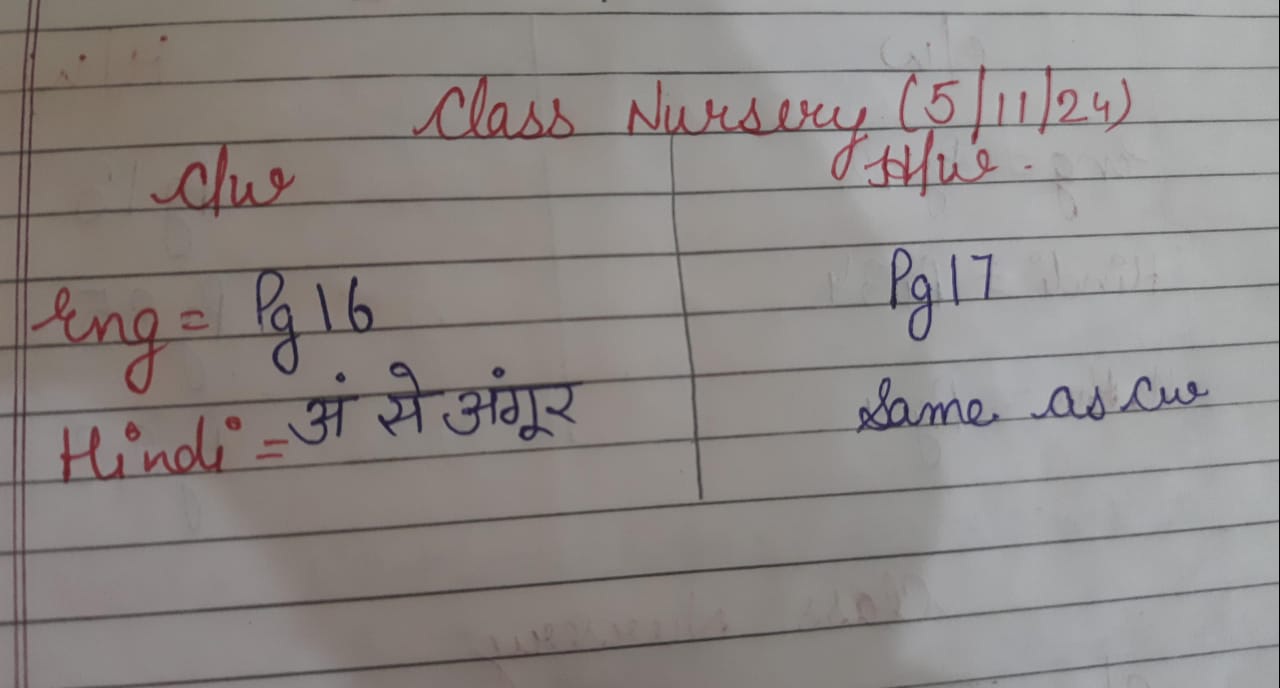 Class Nursery (5/11/24)
C/w H/w.
Eng = Pg 16 Pg 17
Hindi = अं से अंगूर Same as cw